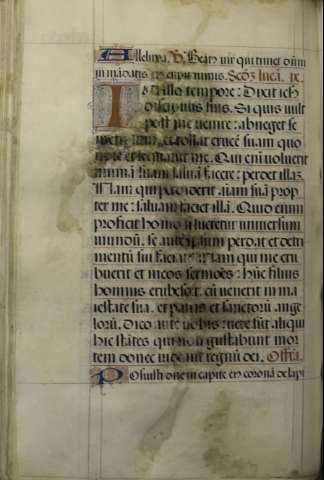 Alleluya. V. Beat9 vir qui timet dūm
in mādatis ei9 cupit nimis. Scđz lucā. ix.
In illo tempore: Dixit ieħ
discipulis suis. Si quis vult
post me venire: abneget se
et tollat crucē suam quo
et sequatur me. Qui enī voluerit
animā suam saluā facere: perdet illaz.
Nam qui perdiderit aīam suā prop
ter me: saluam faciet illā. Quid enim
proficit homo si lucretur uniuersum
mundū, se autē ipsum perdat et detri
mentū sui faciat? Nam qui me eru
buerit et meos sermōes: hūc filius
hominis erubescet, cū venerit in ma
iestate sua, et patris et sanctorū ange
lorū. Dico aute vobis: vere sūt aliqui
hic stātes qui non gustabunt mor
tem donec videant regnū dei. Offra.
Posuisti dn̄e in capite ei9 coronā de lapi